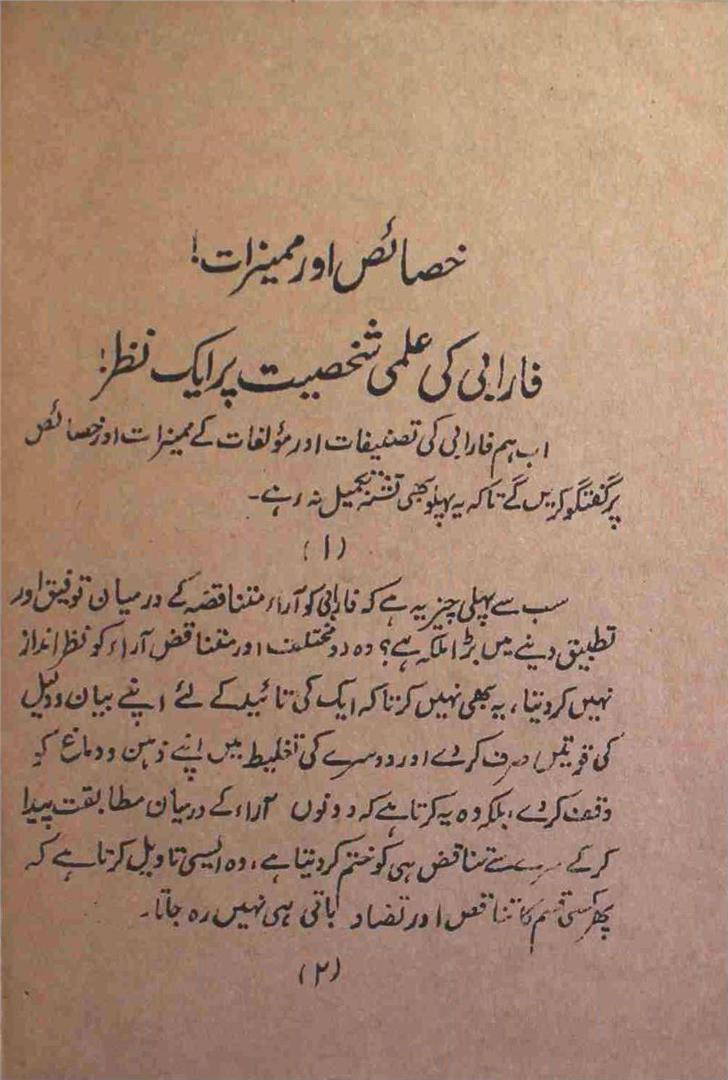 خصائص اور ممیزات!
فارابی کی علمی شخصیت پر ایک نظر!
اب ہم فارابی کی تصنیفات اور مؤلفات کے ممیزات اور خصائص
پر گفتگو کریں گے تاکہ یہ پہلو بھی تشنۂ تکمیل نہ رہے۔
(۱)
سب سے پہلی چیز یہ ہے کہ فارابی کو آراء متناقضہ کے درمیان توفیق اور
تطبیق دینے میں بڑا ملکہ ہے؟ وہ دو مختلف اور متناقض آراء کو نظر انداز
نہیں کر دیتا، یہ بھی نہیں کرتا کہ ایک کی تائید کے لئے اپنے بیان و دلیل
کی قوتیں صرف کر دے اور دوسرے کی تغلیط میں اپنے ذہن و دماغ کو
وقف کر دے، بلکہ وہ یہ کرتا ہے کہ دونوں آراء کے درمیان مطابقت پیدا
کر کے سرے سے تناقض ہی کو ختم کر دیتا ہے، وہ ایسی تاویل کرتا ہے کہ
پھر کسی قسم کا تناقص اور تضاد باقی ہی نہیں رہ جاتا۔
(۲)